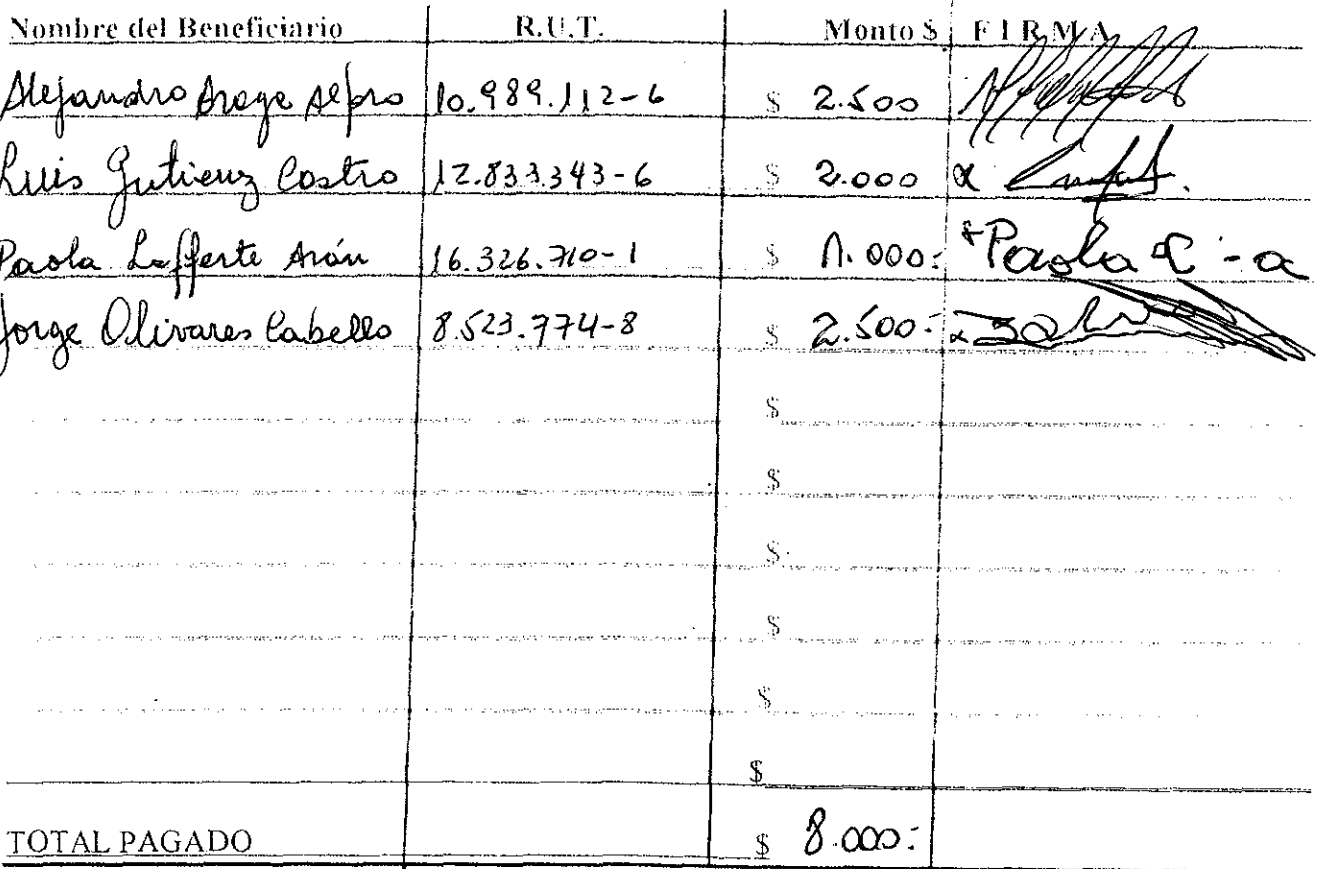 Nombre del Beneficiario R.U.T. Monto $ FIRMA
Alejandro 10.989.112-6 $ 2.500
Luis Gutierrez Castro 12.833.343-6 $ 2.000
Paola Lafferte Arón 16.326.710-1 $ 1.000.- Paola L - a
Jorge Olivares Cabello 8.523.774-8 $ 2.500.-
$
$
$
$
$
$
TOTAL PAGADO $ 8.000.-